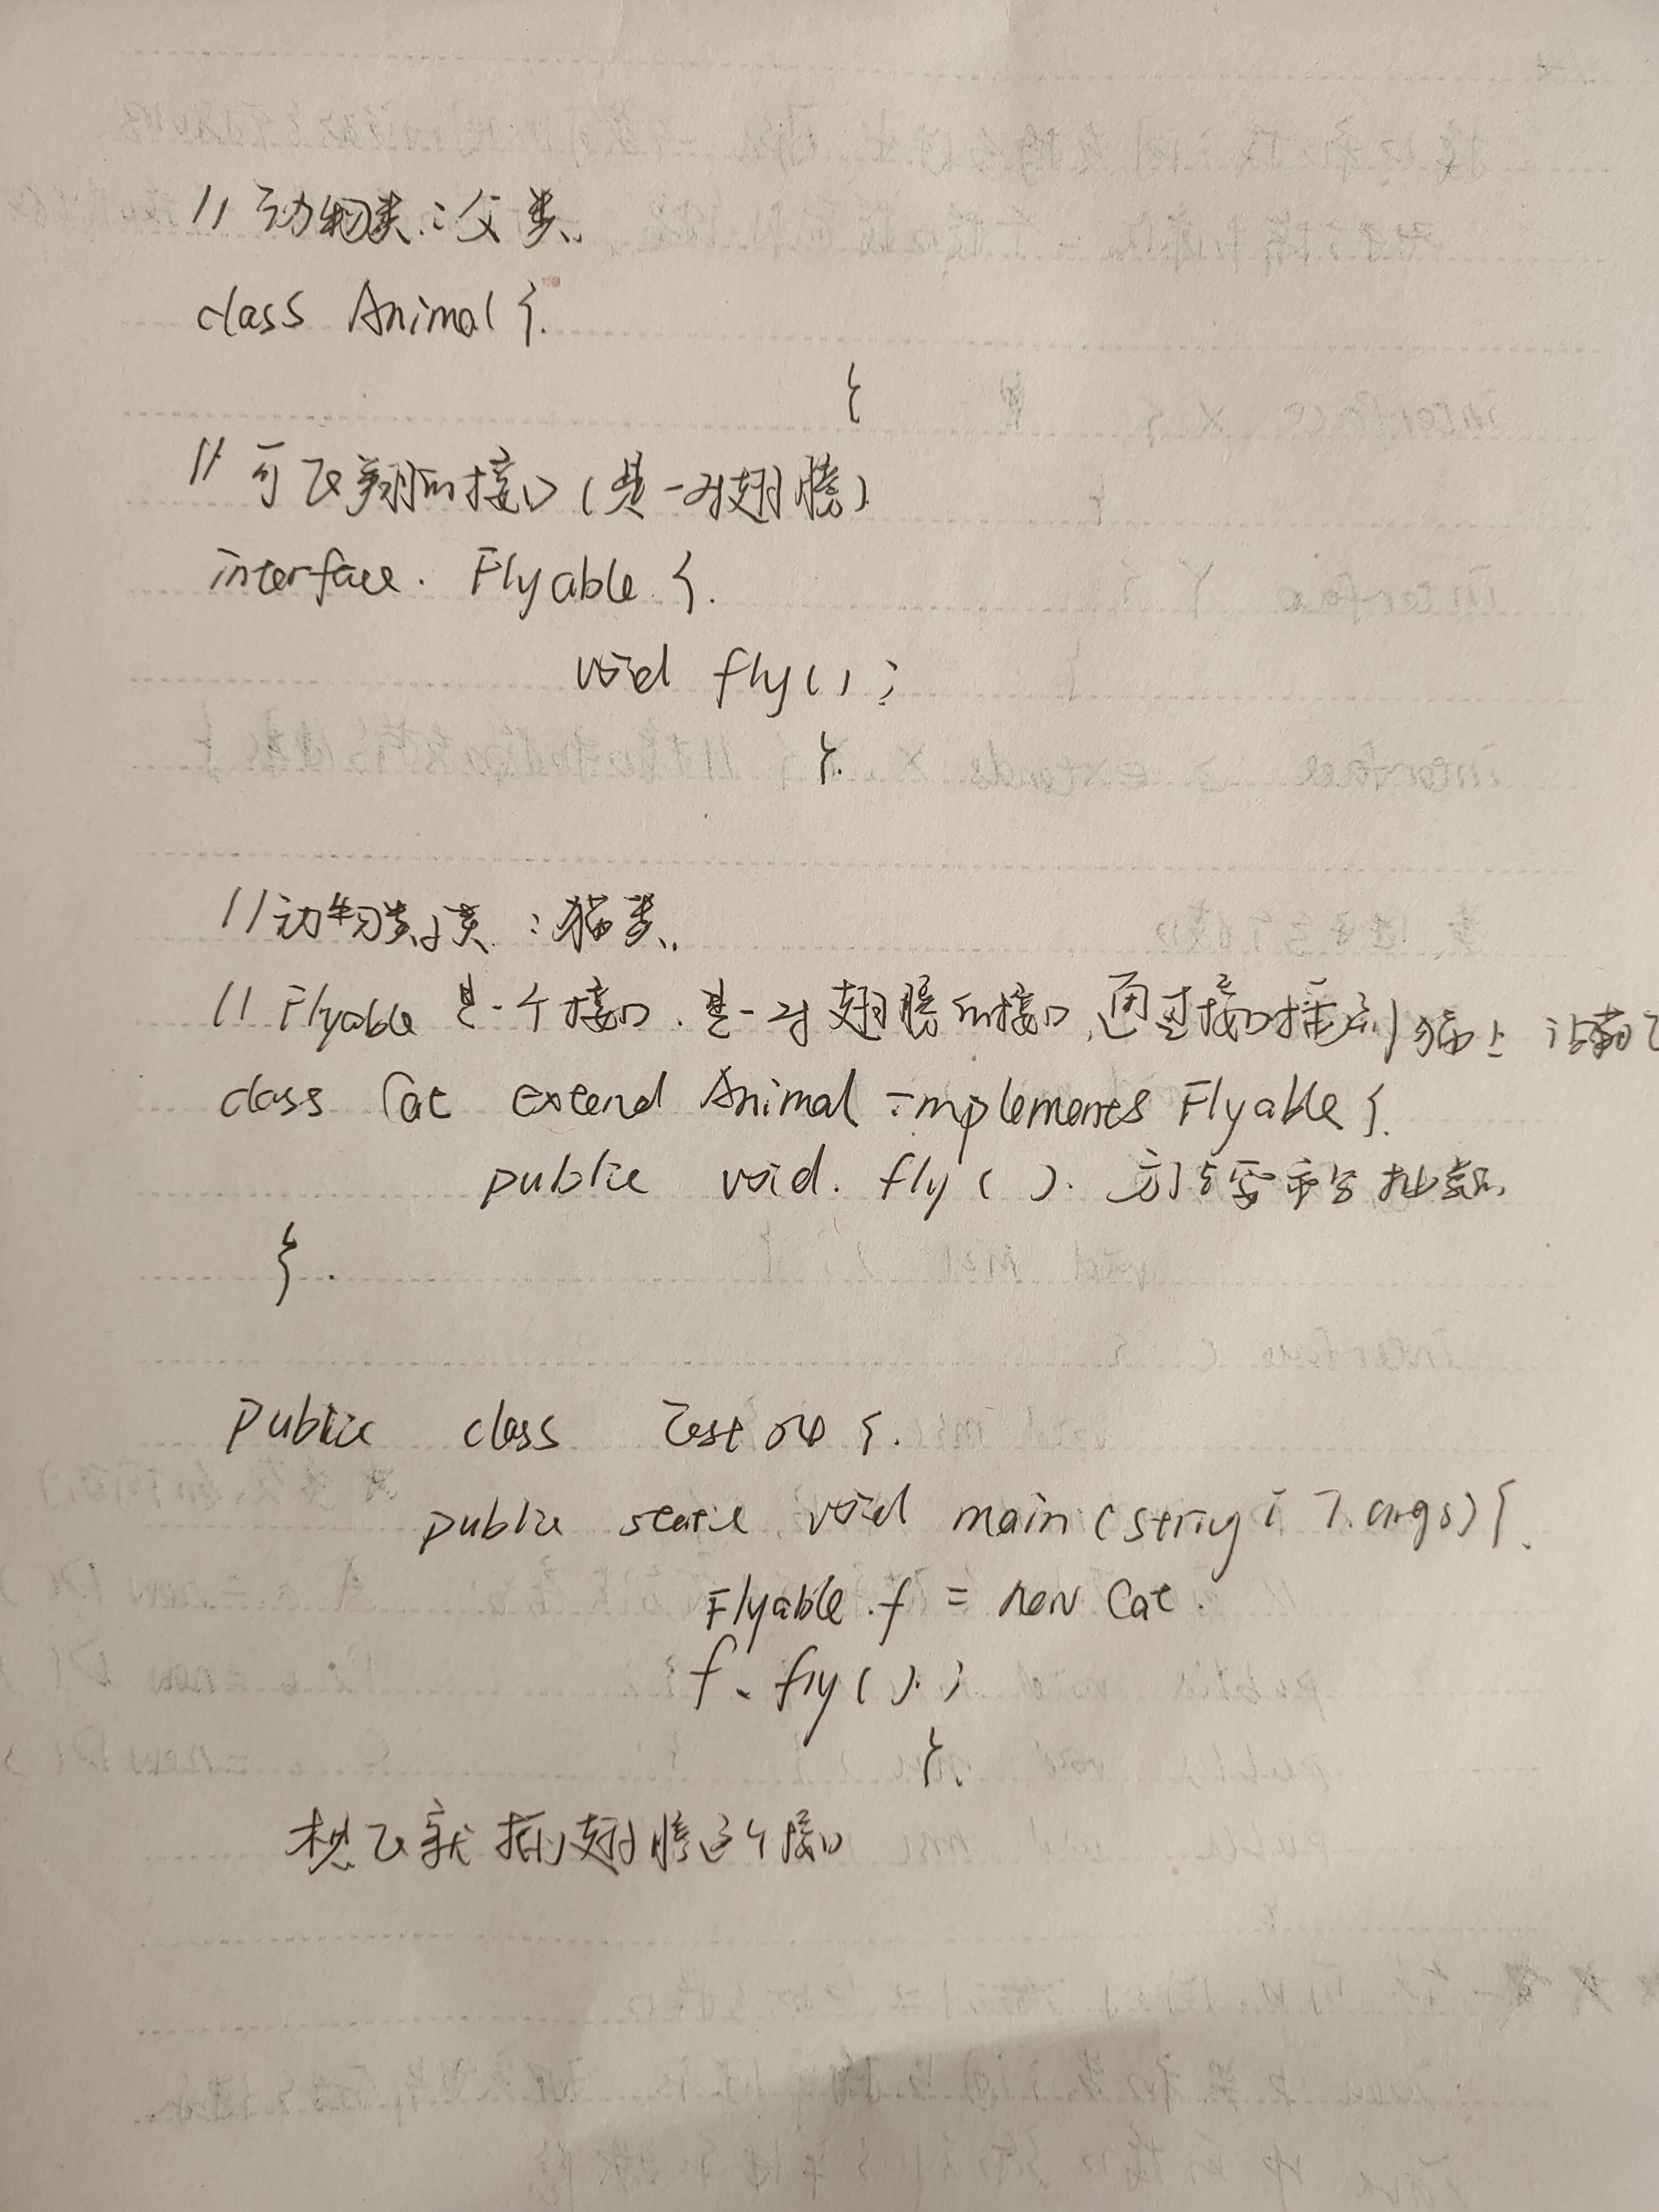 // 动物类：父类
class Animal {
}
// 可飞翔的接口 (是一对翅膀)
interface Flyable {
void fly();
}
// 动物类子类：猫类
// Flyable 是一个接口. 是一对翅膀的接口, 通过接口插到猫上 让猫
class Cat extend Animal implements Flyable {
public void fly()
}
public class Test04 {
public static void main (string [ ] args) {
Flyable f = new Cat
f. fly();
}
想飞就插翅膀这个接口